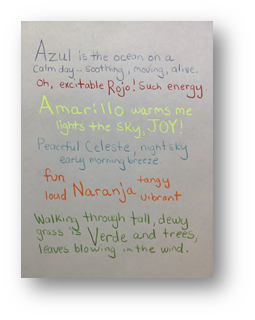 Azul is the ocean on a
calm day - soothing, moving, alive.
Oh, excitable Rojo! Such energy
Amarillo warms me
lights the sky, JOY!
Peaceful Celeste, night sky
early morning breeze.
fun tangy
loud Naranja vibrant
Walking through tall, dewy
grass is Verde and trees,
leaves blowing in the wind.